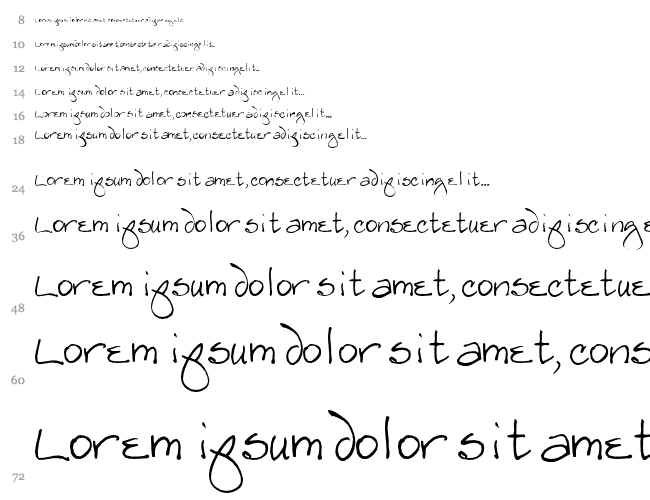 8 Lorem ipsum dolor sit amet, consectetuer adipiscing elit...
10 Lorem ipsum dolor sit amet, consectetuer adipiscing elit...
12 Lorem ipsum dolor sit amet, consectetuer adipiscing elit...
14 Lorem ipsum dolor sit amet, consectetuer adipiscing elit...
16 Lorem ipsum dolor sit amet, consectetuer adipiscing elit...
18 Lorem ipsum dolor sit amet, consectetuer adipiscing elit...
24 Lorem ipsum dolor sit amet, consectetuer adipiscing elit...
36 Lorem ipsum dolor sit amet, consectetuer adipiscing e
48 Lorem ipsum dolor sit amet, consectetue
60 Lorem ipsum dolor sit amet, cons
72 Lorem ipsum dolor sit amet